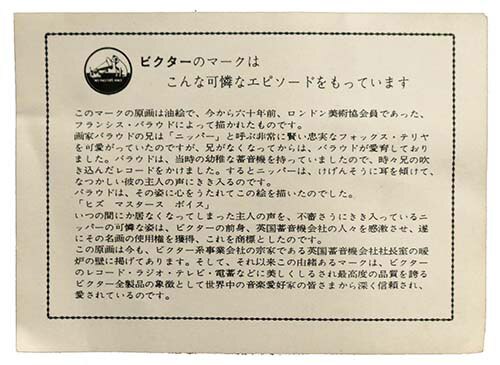 ビクターのマークは
こんな可憐なエピソードをもっています
このマークの原画は油絵で、今から六十年前、ロンドン美術協会員であった、
フランシス・バラウドによって描かれたものです。
画家バラウドの兄は「ニッパー」と呼ぶ非常に賢い忠実なフォックス・テリヤ
を可愛がっていたのですが、兄がなくなってからは、バラウドが愛育しており
ました。バラウドは、当時の幼稚な蓄音機を持っていましたので、時々兄の吹
き込んだレコードをかけました。するとニッパーは、けげんそうに耳を傾けて、
なつかしい彼の主人の声にきき入るのです。
バラウドは、その姿に心をうたれてこの絵を描いたのでした。
「ヒズ マスタース ボイス」
いつの間にか居なくなってしまった主人の声を、不審さうにきき入っているニ
ッパーの可憐な姿は、ビクターの前身、英国蓄音機会社の人々を感激させ、遂
にその名画の使用権を獲得、これを商標としたのです。
この原画は今も、ビクター系事業会社の宗家である英国蓄音機会社社長室の暖
炉の壁に掲げてあります。そして、それ以来この由緒あるマークは、ビクター
のレコード・ラジオ・テレビ・電蓄などに美しくしるされ最高度の品質を誇る
ビクター全製品の象徴として世界中の音楽愛好家の皆さまから深く信頼され、
愛されているのです。